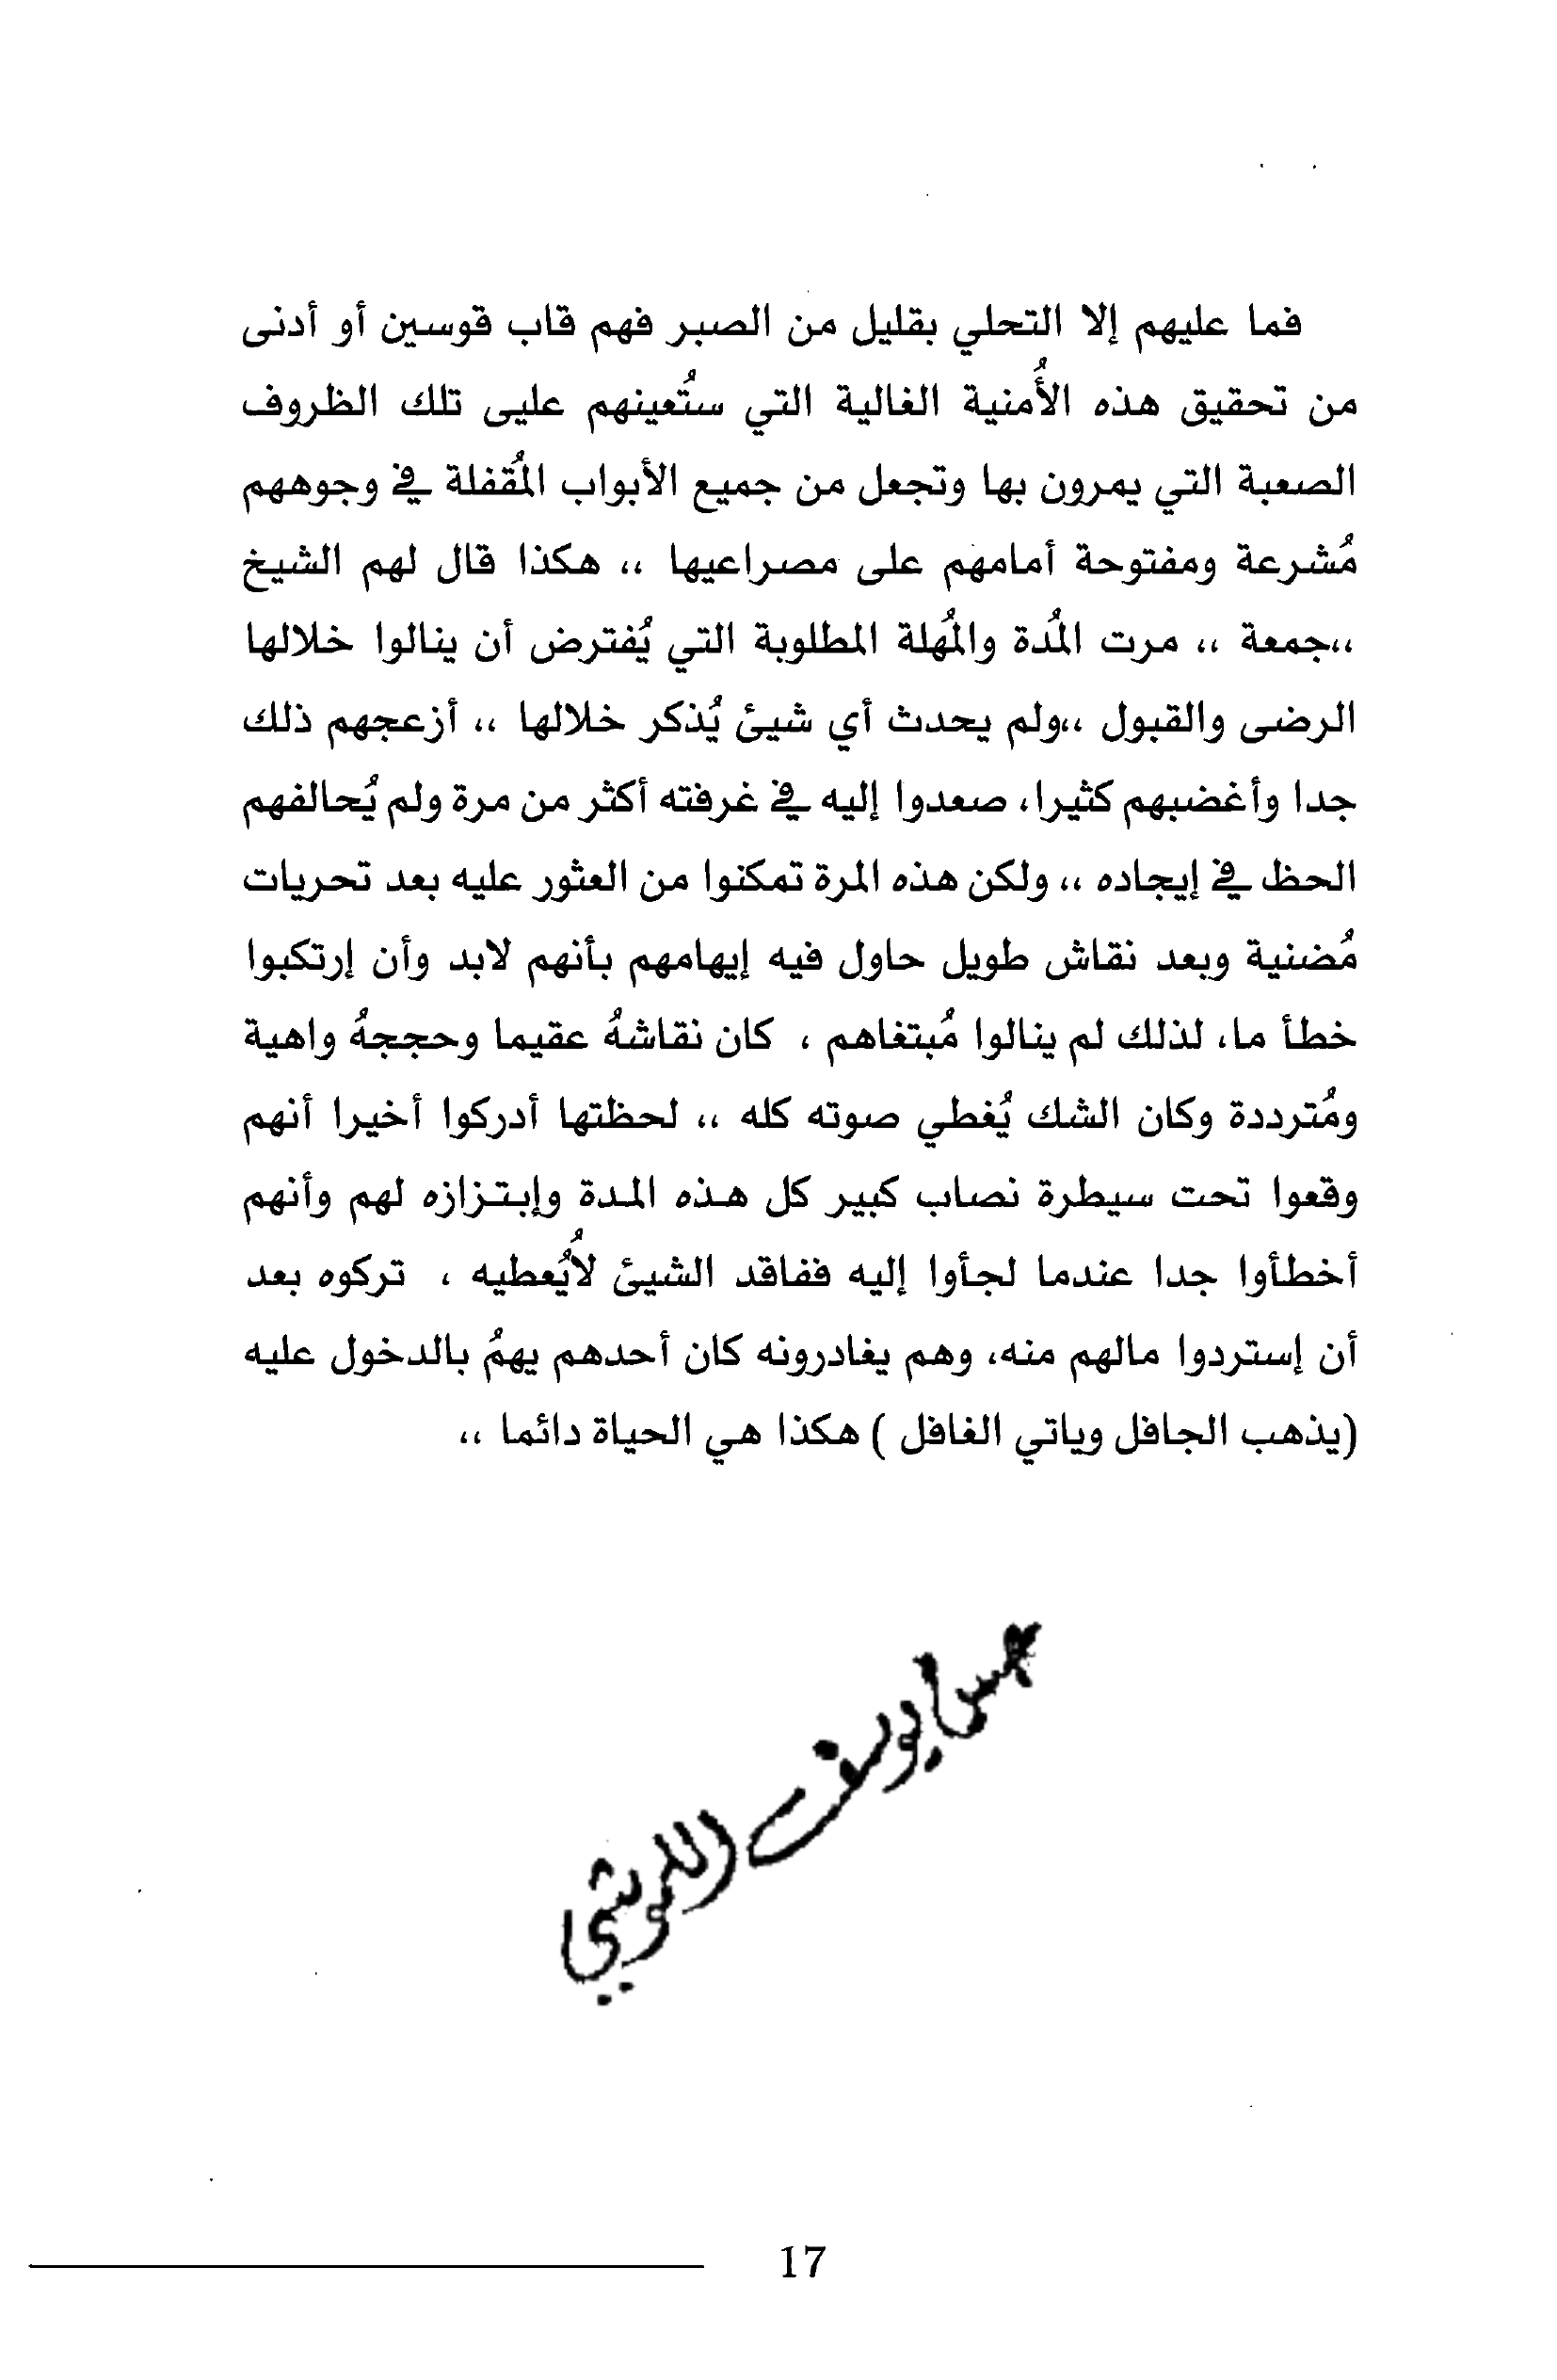 فما عليهم إلا التحلي بقليل من الصبر فهم قاب قوسين أو أدنى
من تحقيق هذه الأُمنية الغالية التي ستُعينهم عليى تلك الظروف
الصعبة التي يمرون بها وتجعل من جميع الأبواب المُقفلة في وجوههم
مُشرعة ومفتوحة أمامهم على مصراعيها ،، هكذا قال لهم الشيخ
،،جمعة ،، مرت المُدة والمُهلة المطلوبة التي يُفترض أن ينالوا خلالها
الرضى والقبول ،،ولم يحدث أي شيئ يُذكر خلالها ،، أزعجهم ذلك
جدا وأغضبهم كثيرا، صعدوا إليه في غرفته أكثر من مرة ولم يُحالفهم
الحظ في إيجاده ،، ولكن هذه المرة تمكنوا من العثور عليه بعد تحريات
مُضنية وبعد نقاش طويل حاول فيه إيهامهم بأنهم لابد وأن إرتكبوا
خطأ ما، لذلك لم ينالوا مُبتغاهم ، كان نقاشهُ عقيما وحججهُ واهية
ومُترددة وكان الشك يُغطي صوته كله ،، لحظتها أدركوا أخيرا أنهم
وقعوا تحت سيطرة نصاب كبير كل هذه المدة وإبتزازه لهم وأنهم
أخطأوا جدا عندما لجأوا إليه ففاقد الشيئ لايُعطيه ، تركوه بعد
أن إستردوا مالهم منه، وهم يغادرونه كان أحدهم يهمُ بالدخول عليه
(يذهب الجافل وياتي الغافل ) هكذا هي الحياة دائما ،،
يوسف
17